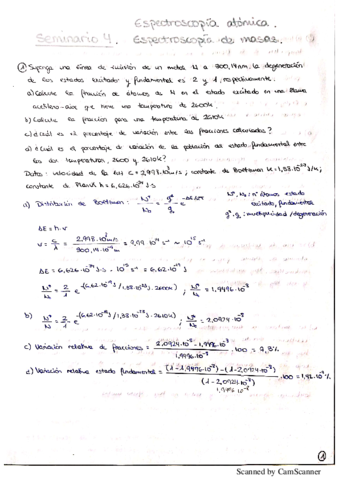 Espectroscopía atómica.
Seminario 4. Espectroscopía de masas.
① Suponga una línea de emisión de un metal M a 300,14 nm. La degeneración
de los estados excitado y fundamental es 2 y 1, respectivamente.
a) Calcule la fracción de átomos de M en el estado excitado en una llama
acetileno-aire que tiene una temperatura de 2600K.
b) Calcule la fracción para una temperatura de 2610K
c) ¿Cuál es el porcentaje de variación entre las fracciones calculadas?
d) ¿Cuál es el porcentaje de variación de la población del estado fundamental entre
las dos temperaturas, 2600 y 2610K?
Datos: velocidad de la luz c = 2,998.10⁸ m/s; constante de Boltzmann K = 1,38.10⁻²³ J/K;
constante de Planck h = 6,626.10⁻³⁴ J.s
a) Distribución de Boltzmann: N*/N₀ = g*/g₀ e^-ΔE/KT
N*, N₀: nº átomos estado
excitado, fundamental
g*, g₀: multiplicidad / degeneración
ΔE = h.ν
ν = c/λ = 2,998.10⁸ m/s / 300,14.10⁻⁹ m = 9,99.10¹⁴ s⁻¹ ~ 10¹⁵ s⁻¹
ΔE = 6,626.10⁻³⁴ J.s . 10¹⁵ s⁻¹ = 6,62.10⁻¹⁹ J
N*/N₀ = 2/1 e^-(6,62.10⁻¹⁹ J / 1,38.10⁻²³ J. 2600K) ; N*/N₀ = 1,9496.10⁻⁸
b) N*/N₀ = 2/1 e^-(6,62.10⁻¹⁹ J / 1,38.10⁻²³ J. 2610K) ; N*/N₀ = 2,0924.10⁻⁸
c) Variación relativa de fracciones = 2,0924.10⁻⁸ - 1,9496.10⁻⁸ / 1,9496.10⁻⁸ . 100 = 7,3%
d) Variación relativa estado fundamental = (1 - 1,9496.10⁻⁸) - (1 - 2,0924.10⁻⁸) / (1 - 2,0924.10⁻⁸) . 100 = 1,42.10⁻⁷%
1,9496.10⁻⁸
①
Scanned by CamScanner